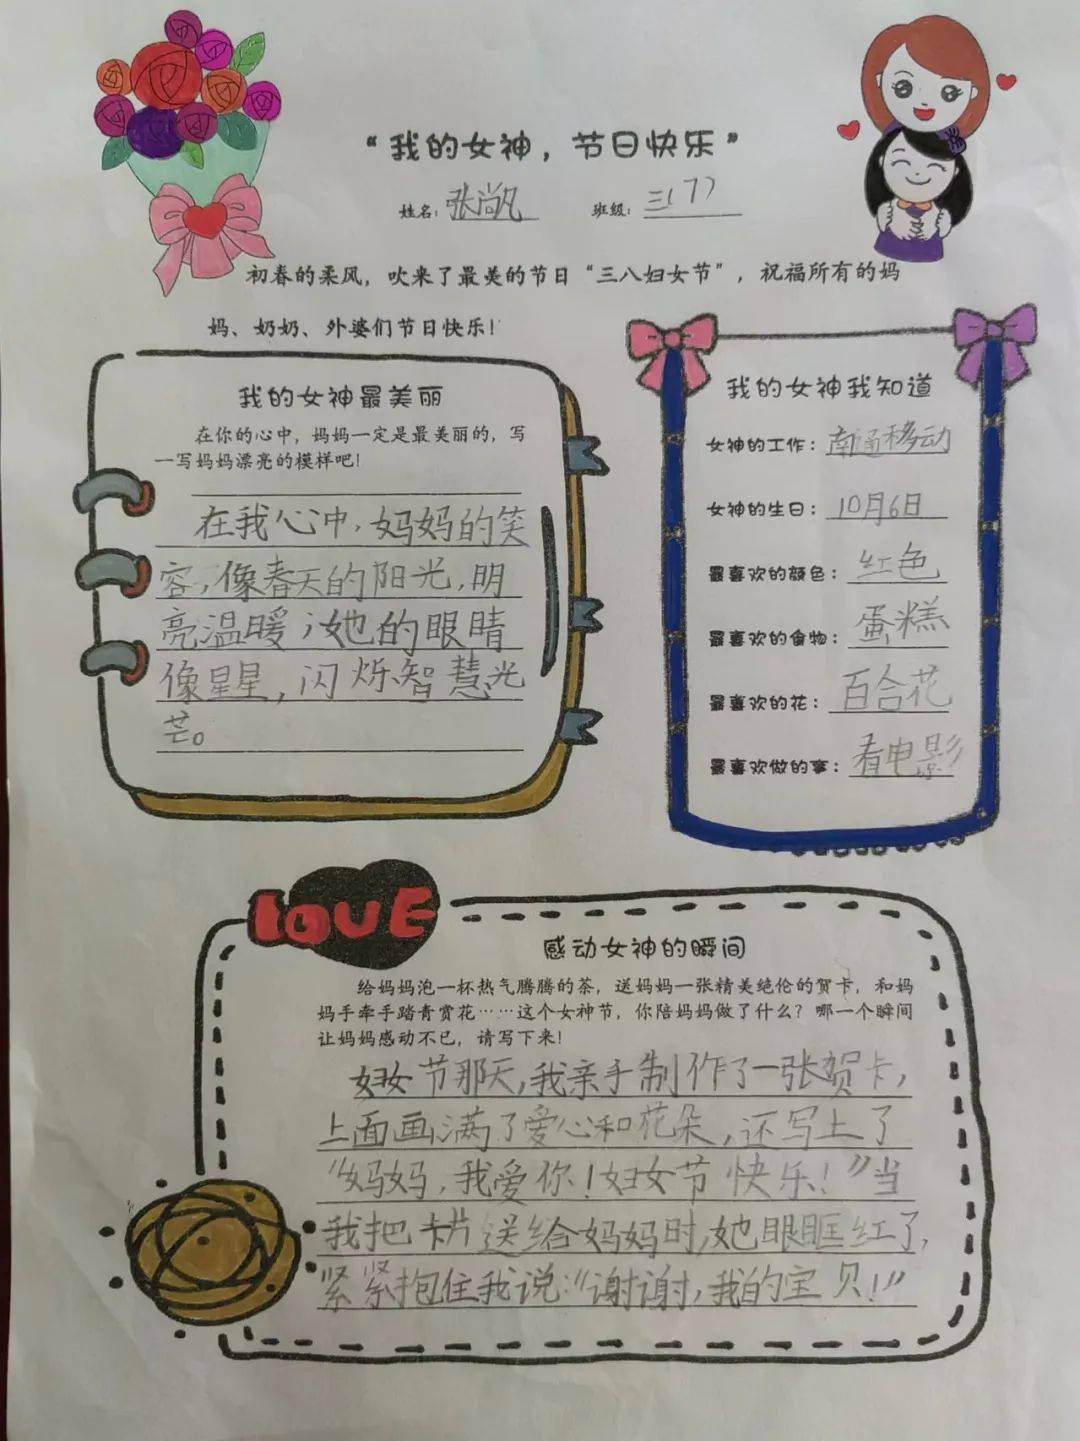 “我的女神，节日快乐”
姓名：张尚凡 班级：三（7）
初春的柔风，吹来了最美的节日“三八妇女节”，祝福所有的妈
妈、奶奶、外婆们节日快乐！
我的女神最美丽
在你的心中，妈妈一定是最美丽的，写
一写妈妈漂亮的模样吧！
在我心中，妈妈的笑
容，像春天的阳光，明
亮温暖；她的眼睛
像星星，闪烁智慧光
芒。
我的女神我知道
女神的工作：南通移动
女神的生日：10月6日
最喜欢的颜色：红色
最喜欢的食物：蛋糕
最喜欢的花：百合花
最喜欢做的事：看电影
LOVE
感动女神的瞬间
给妈妈泡一杯热气腾腾的茶，送妈妈一张精美绝伦的贺卡，和妈
妈手牵手踏青赏花……这个女神节，你陪妈妈做了什么？哪一个瞬间
让妈妈感动不已，请写下来！
妇女节那天，我亲手制作了一张贺卡，
上面画满了爱心和花朵，还写上了
“妈妈，我爱你！妇女节快乐！”当
我把卡片送给妈妈时，她眼眶红了，
紧紧抱住我说：“谢谢，我的宝贝！”